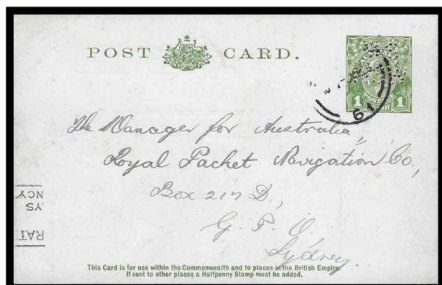 POST CARD.
1 1
61
The Manager for Australia,
Royal Packet Navigation Co,
Box 217 D,
G. P. O.
Sydney.
YS
NCY
RAT
This Card is for use within the Commonwealth and to places in the British Empire.
If sent to other places a Halfpenny Stamp must be added.